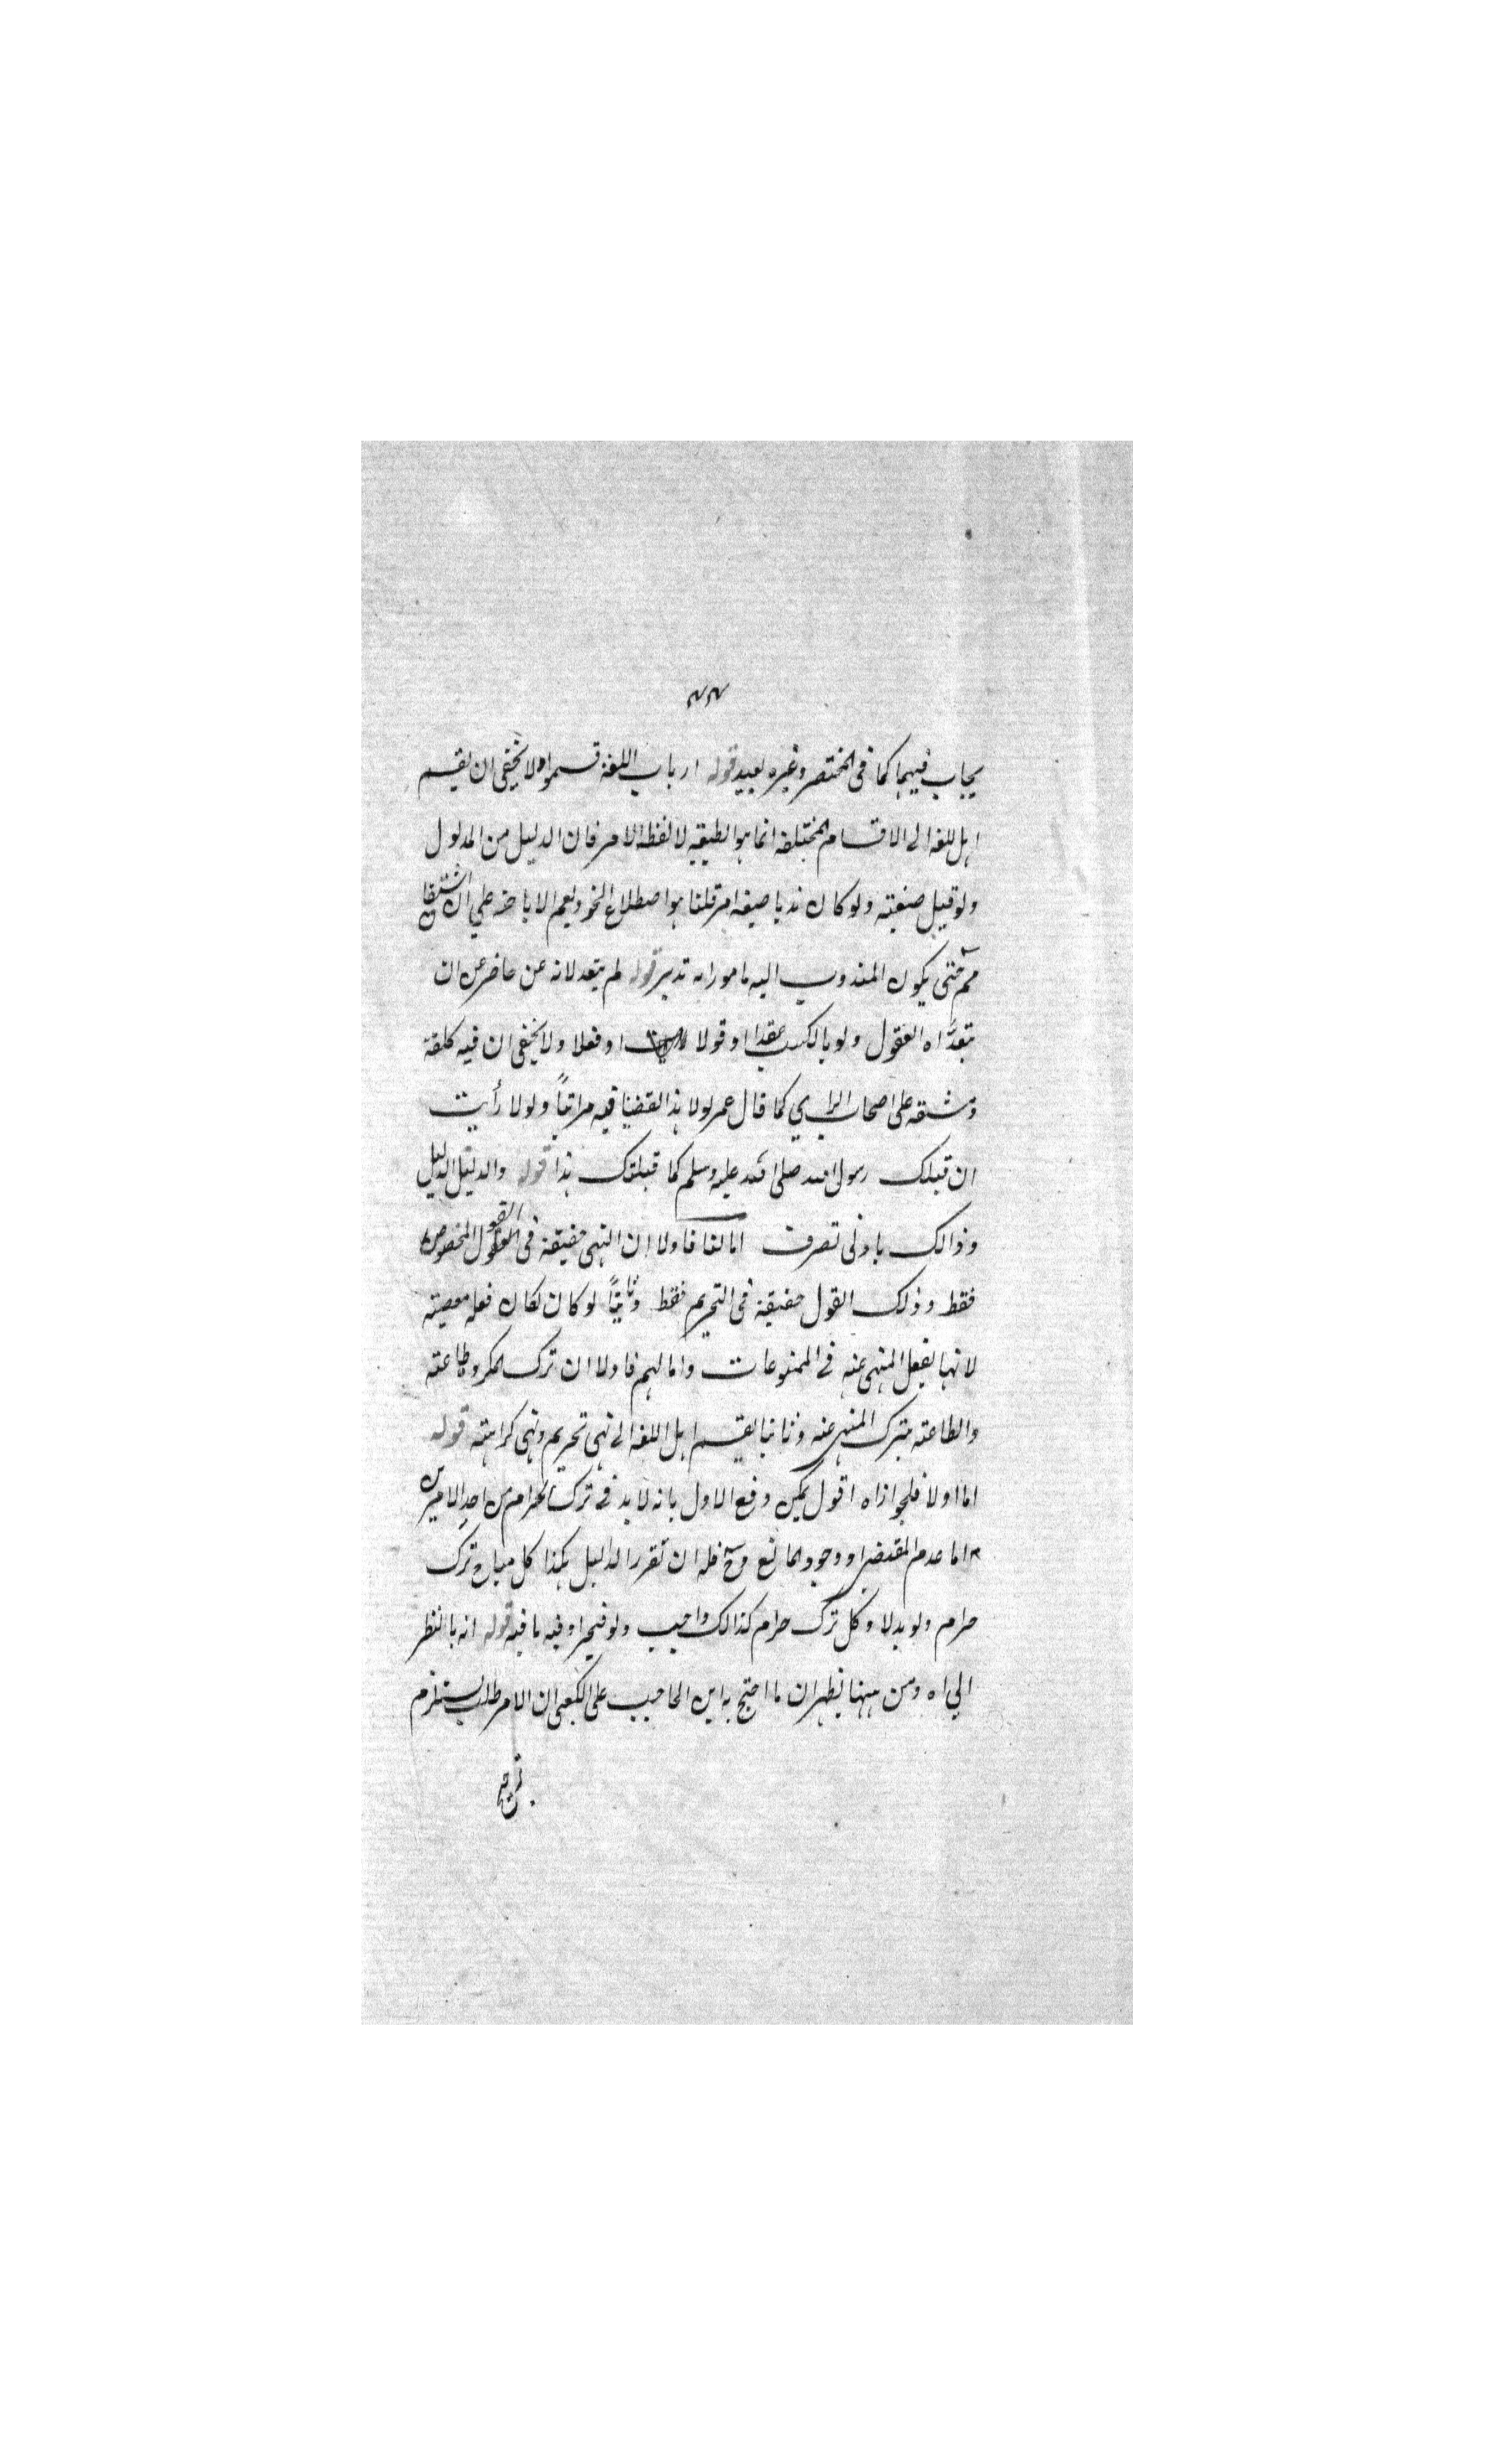 ٢٢
يجاب فيهما كما فى المختصر وغيره بعيد قوله ارباب اللغة قسموا ولا يخفى ان تقسيم
اهل اللغة الى الاقسام المختلفة انما هو الطيقيه لا لفظة الامر فان الدليل من المدلول
ولو قيل صنعيته ولو كان ندبا صيغة امر قلنا هو اصطلاح النحو ويعم الاباحة على ان اشتقاق
مم حتى يكون المندوب اليه مامورا به تدبر قوله لم يتعد لانه عن حاضر عن ان
تتعداه العقول ولو بالكسب عقدا او قولا او فعلا ولا يخفى ان فيه كلفة
ومشقة على اصحاب الراى كما قال عمر لولا هذا لقضينا فيه مراتبًا ولولا رأيت
ان قبلك رسول الله صلى الله عليه وسلم كما قبلتك هذا قوله والدليل الدليل
وذالك بادنى تصرف اما لنا فاولا ان النهى حقيقة فى القول المخصوص
فقط وذلك القول حقيقة فى التحريم فقط وثانيًا لو كان لكان فعله معصية
لانها بفعل المنهى عنه فى الممنوعات واما لهم فاولا ان ترك المكروه طاعته
والطاعته بترك المنهى عنه وثانيا تقسيم اهل اللغة الى نهى تحريم ونهى كراهته قوله
اما اولا فلجوازاه اقول يمكن دفع الاول بانه لا بد فى ترك الحرام من احد الامرين
اما عدم المقتضى او وجود المانع وح فله ان تقرر الدليل هكذا كل مباح ترك
حرام ولو بدلا وكل ترك حرام كذالك واجب ولو مخيرا وفيه ما فيه قوله انه بالنظر
الى اه ومن ههنا يظهر ان ما احتج به ابن الحاجب على الكعبى ان الامر طلب يستلزم